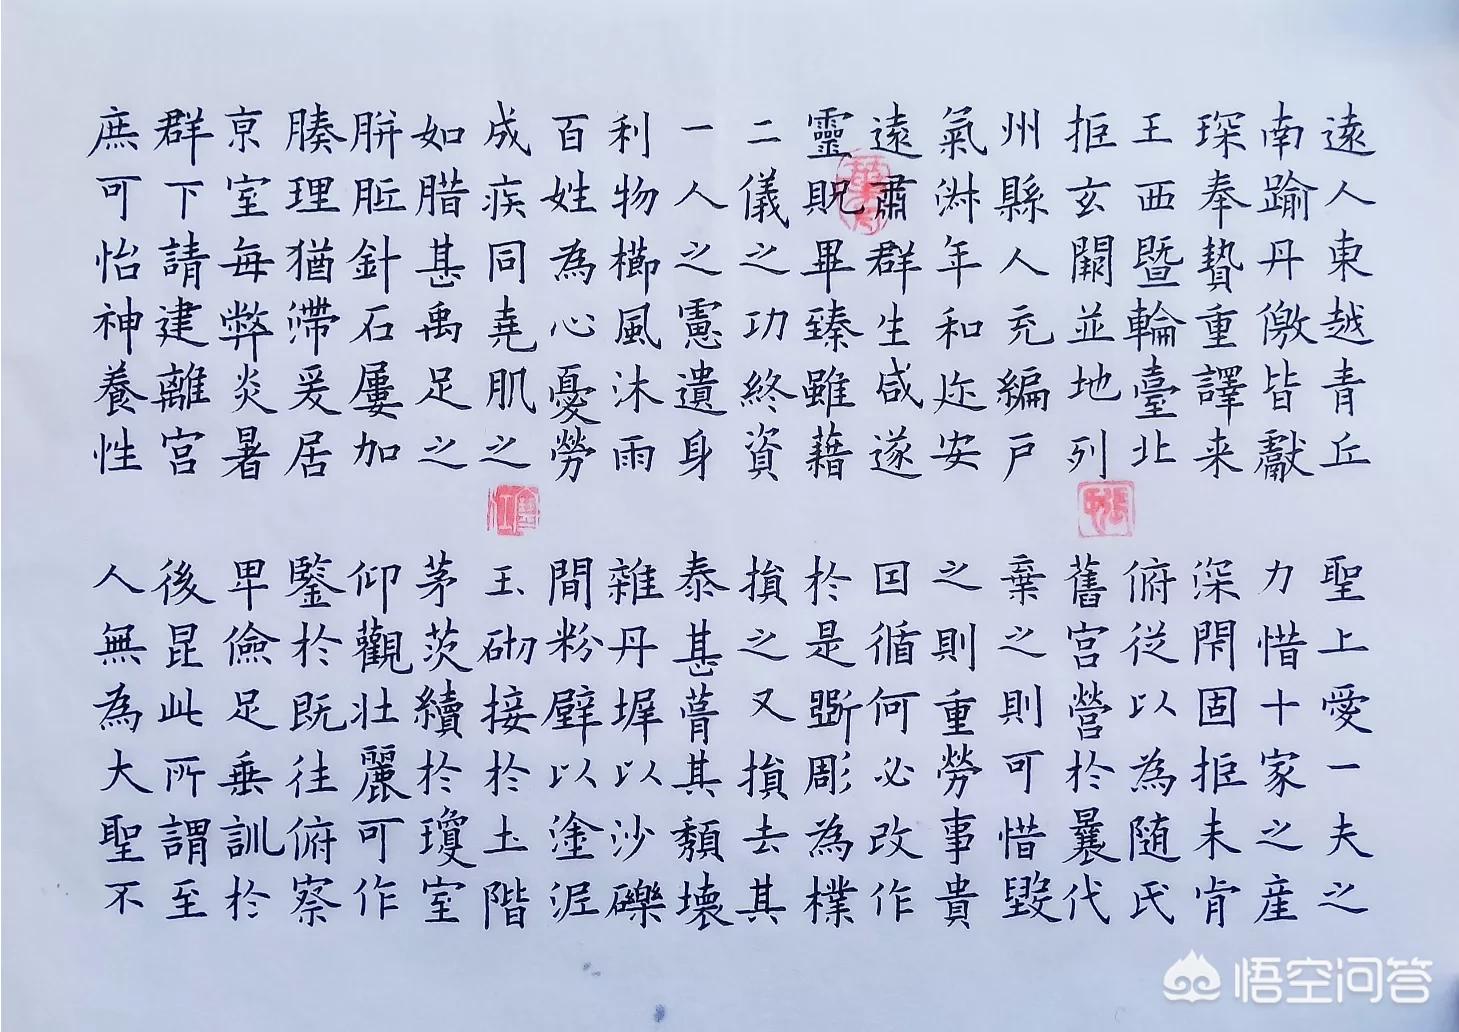 遠人東越青丘
南踰丹儌皆獻
琛奉贄重譯来
王西暨輪臺北
拒玄闕並地列
州縣人充編戶
氣淑年和迩安
遠肅群生咸遂
靈貺畢臻雖藉
二儀之功終資
一人之憲遺身
利物櫛風沐雨
百姓為心憂勞
成疾同堯肌之
如腊甚禹足之
胼胝針石屢加
腠理猶滯爰居
京室每弊炎暑
群下請建離宮
庶可怡神養性
聖上愛一夫之
力惜十家之産
深閇固拒未肯
俯從以為随氏
舊宮營於曩代
棄之則可惜毀
之則重勞事貴
因循何必改作
於是斲彫為樸
損之又損去其
泰甚葺其頹壞
雜丹墀以沙礫
間粉壁以塗泥
玉砌接於土階
茅茨續於瓊室
仰觀壯麗可作
鑒於既往俯察
卑儉足垂訓於
後昆此所謂至
人無為大聖不
悟空问答